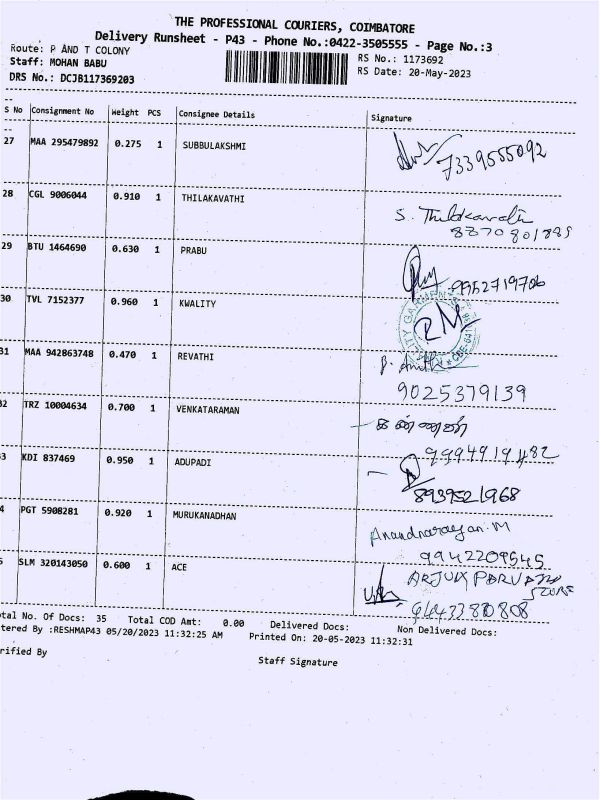 THE PROFESSIONAL COURIERS, COIMBATORE
Delivery Runsheet - P43 - Phone No.:0422-3505555 - Page No.:3
Route: P AND T COLONY
Staff: MOHAN BABU
DRS No.: DCJB117369203
RS No.: 1173692
RS Date: 20-May-2023
S No Consignment No Weight PCS Consignee Details Signature
27 MAA 295479892 0.275 1 SUBBULAKSHMI
7339555092
28 CGL 9006044 0.910 1 THILAKAVATHI
S. Thilakavathi
8870801885
29 BTU 1464690 0.630 1 PRABU
9952719706
30 TVL 7152377 0.960 1 KWALITY
31 MAA 942863748 0.470 1 REVATHI
9025379139
32 TRZ 10004634 0.700 1 VENKATARAMAN
9994919482
3 KDI 837469 0.950 1 ADUPADI
8939521968
4 PGT 5908281 0.920 1 MURUKANADHAN
Anandnarayan.M
9942209545
5 SLM 320143050 0.600 1 ACE
ARJUN PARVATHI
STORE
otal No. Of Docs: 35 Total COD Amt: 0.00 Delivered Docs: Non Delivered Docs:
tered By :RESHMAP43 05/20/2023 11:32:25 AM Printed On: 20-05-2023 11:32:31
rified By
Staff Signature